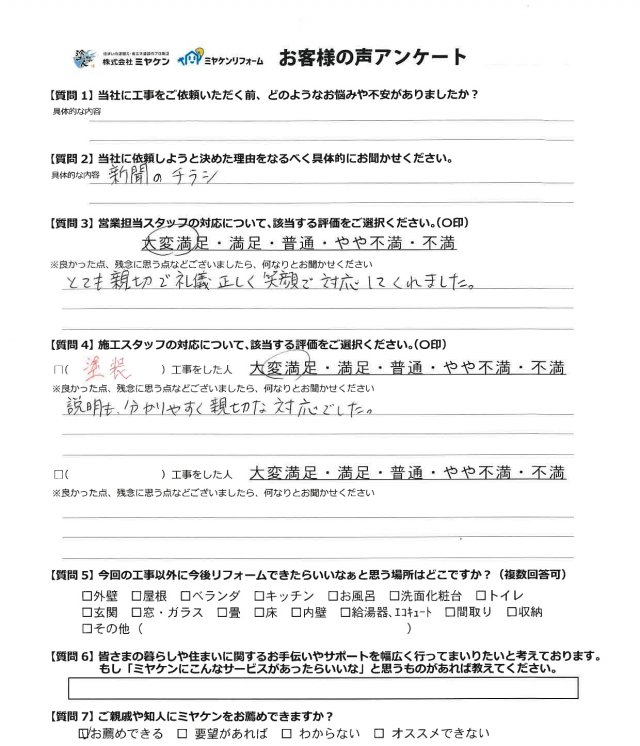 住まいの塗替え・省エネ塗装のプロ集団
株式会社ミヤケン ミヤケンリフォーム お客様の声アンケート
【質問1】当社に工事をご依頼いただく前、どのようなお悩みや不安がありましたか?
具体的な内容
【質問2】当社に依頼しようと決めた理由をなるべく具体的にお聞かせください。
具体的な内容 新聞のチラシ
【質問3】営業担当スタッフの対応について、該当する評価をご選択ください。(○印)
大変満足・満足・普通・やや不満・不満
※良かった点、残念に思う点などございましたら、何なりとお聞かせください
とても親切で礼儀正しく笑顔で対応してくれました。
【質問4】施工スタッフの対応について、該当する評価をご選択ください。(○印)
□( 塗装 )工事をした人 大変満足・満足・普通・やや不満・不満
※良かった点、残念に思う点などございましたら、何なりとお聞かせください
説明も、分かりやすく親切な対応でした。
□( )工事をした人 大変満足・満足・普通・やや不満・不満
※良かった点、残念に思う点などございましたら、何なりとお聞かせください
【質問5】今回の工事以外に今後リフォームできたらいいなぁと思う場所はどこですか?(複数回答可)
□外壁 □屋根 □ベランダ □キッチン □お風呂 □洗面化粧台 □トイレ
□玄関 □窓・ガラス □畳 □床 □内壁 □給湯器、エコキュート □間取り □収納
□その他( )
【質問6】皆さまの暮らしや住まいに関するお手伝いやサポートを幅広く行ってまいりたいと考えております。
もし「ミヤケンにこんなサービスがあったらいいな」と思うものがあれば教えてください。
【質問7】ご親戚や知人にミヤケンをお薦めできますか?
☑お薦めできる □ 要望があれば □ わからない □ オススメできない